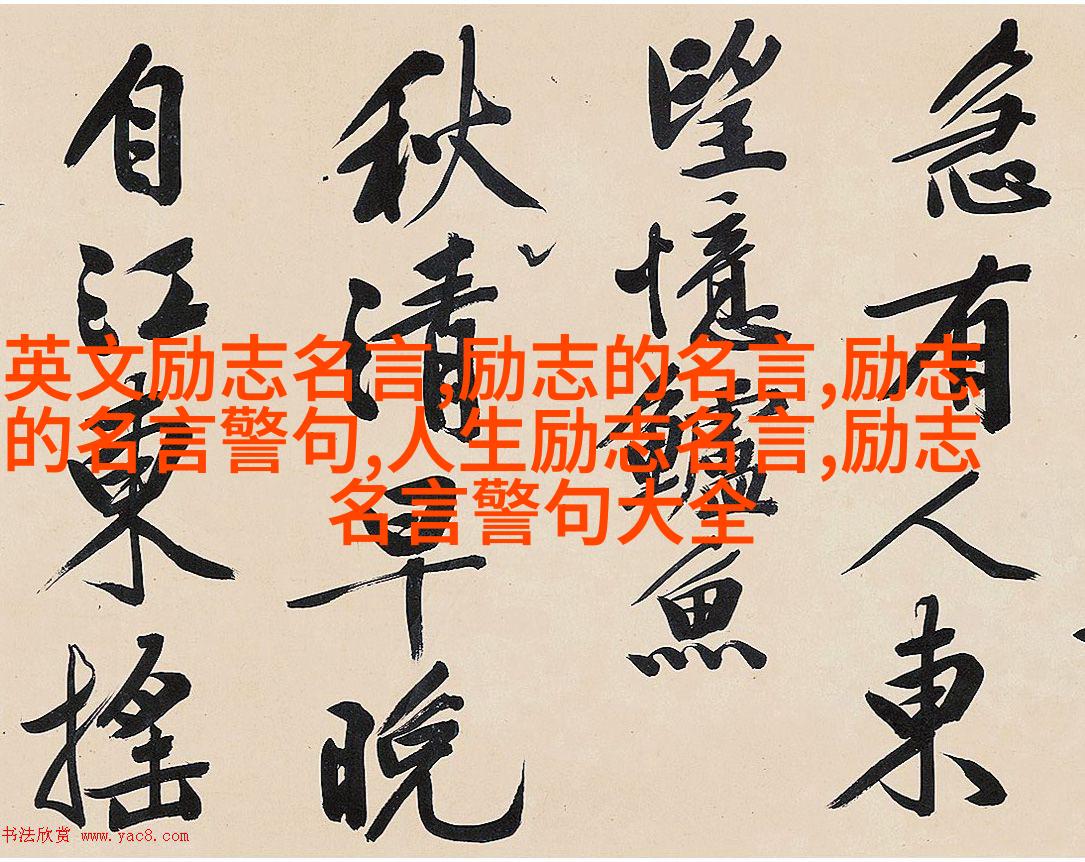 急有人東
望憶鱸魚
秋清早晚
自江東搖
英文励志名言,励志的名言,励志
的名言警句,人生励志名言,励志
名言警句大全
书法欣赏 www.yac8.com